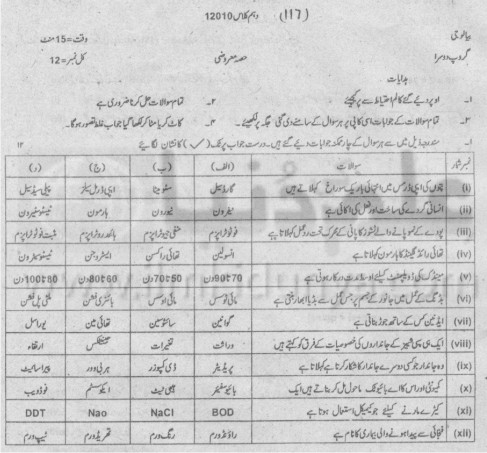 (۱۱۶) دہم کلاس 12010
بیالوجی وقت=15 منٹ
گروپ دوسرا حصہ معروضی کل نمبر=12
ہدایات
۱۔ اوپر دیے گئے کالم احتیاط سے پُر کیجئے ۲۔ تمام سوالات حل کرنا ضروری ہے
۳۔ تمام سوالات کے جوابات اسی کاپی پر ہر سوال کے سامنے دی گئی جگہ پر لکھیے۔ ۴۔ کاٹ کر یا مٹا کر لکھا گیا جواب غلط تصور ہو گا۔
۱۔ مندرجہ ذیل میں سے ہر سوال کے چار ممکنہ جوابات دیے گئے ہیں۔ درست جواب پر ٹک (✓) کا نشان لگائیے ۱۲
نمبر شمار سوالات (الف) (ب) (ج) (د)
(i) پتوں کی اپی ڈرمس میں انتہائی باریک سوراخ کہلاتے ہیں گارڈ سیل سٹومیٹا اپی ڈرمل سیلز
(ii) انسانی گردے کی ساخت اور فعل کی اکائی ہے نیفرون نیورون ہارمون
(iii) پودے کے نمو پانے والے کا پانی کے محرک تحت ردعمل کہلاتا ہے فوٹوٹراپزم ہائڈروٹراپزم
(iv) تھائی رائڈ گلینڈ کا ہارمون کہلاتا ہے انسولین تھائی راکسن ایسٹروجن
(v) مینڈک کی ڈویلپمنٹ کیلئے اوسط مدت درکار ہوتی ہے 70تا90دن 50تا70دن 60تا80دن 80تا100دن
(vi) بڈنگ کے عمل میں جانور کے جسم پر جس عمل سے بڈ یا ابھار بنتی ہے مائی ٹوسس می اوسس بائنری فشن ملٹی پل فشن
(vii) ایڈینین کس کے ساتھ جوڑ بناتی ہے گوانین سائٹوسین تھائی مین یوراسل
(viii) ایک ہی سپی شیز کے جانداروں کی خصوصیات کے فرق کو کہتے ہیں وراثت تغیرات ارتقاء
(ix) وہ جاندار جو کسی دوسرے جاندار کا شکار کرتا ہے کہلاتا ہے پریڈیٹر ڈی کمپوزر ہربی وور پیراسائیٹ
(x) کمیونٹی اور اس کا اے بائیوٹک ماحول مل کر بناتے ہیں ایک بائیوسفیئر ہیبی ٹیٹ ایکوسسٹم فوڈ ویب
(xi) کیڑے مارنے کیلئے جو کیمیکل استعمال ہوتا ہے BOD NaCl Nao DDT
(xii) فنجائی سے پیدا ہونے والی بیماری کا نام ہے راؤنڈ ورم رنگ ورم تھریڈ ورم ٹیپ ورم